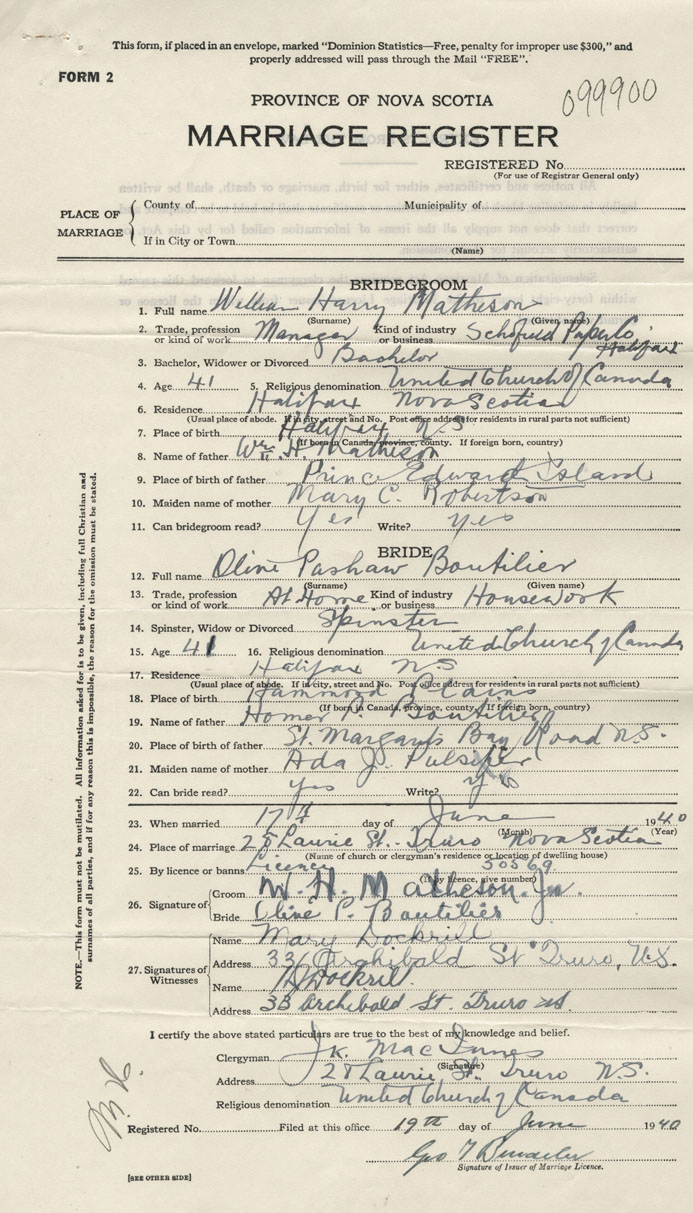 This form, if placed in an envelope, marked "Dominion Statistics—Free, penalty for improper use $300," and
properly addressed will pass through the Mail "FREE".
FORM 2
099900
PROVINCE OF NOVA SCOTIA
MARRIAGE REGISTER
REGISTERED No.
(For use of Registrar General only)
PLACE OF MARRIAGE
County of Municipality of
If in City or Town
(Name)
BRIDEGROOM
1. Full name William Harry Matheson
(Surname) (Given name)
2. Trade, profession or kind of work Manager Kind of industry or business Schofield Paper Co Halifax
3. Bachelor, Widower or Divorced Bachelor
4. Age 41 5. Religious denomination United Church of Canada
6. Residence Halifax Nova Scotia
(Usual place of abode. If in city, street and No. Post office address for residents in rural parts not sufficient)
7. Place of birth Halifax N.S
(If born in Canada, province, county. If foreign born, country)
8. Name of father Wm. H. Matheson
9. Place of birth of father Prince Edward Island
10. Maiden name of mother Mary C. Robertson
11. Can bridegroom read? Yes Write? yes
BRIDE
12. Full name Oline Pashaw Boutilier
(Surname) (Given name)
13. Trade, profession or kind of work At Home Kind of industry or business Housework
14. Spinster, Widow or Divorced Spinster
15. Age 41 16. Religious denomination United Church of Canada
17. Residence Halifax NS
(Usual place of abode. If in city, street and No. Post office address for residents in rural parts not sufficient)
18. Place of birth Hammond Plains
(If born in Canada, province, county. If foreign born, country)
19. Name of father Homer P. Boutilier
20. Place of birth of father St. Margarets Bay Road N.S.
21. Maiden name of mother Ada J. Pulsifer
22. Can bride read? yes Write? yes
23. When married 17th day of June 1940
(Month) (Year)
24. Place of marriage 28 Laurie St. Truro Nova Scotia
(Name of church or clergyman's residence or location of dwelling house)
25. By licence or banns Licence 50569
(If by licence, give number)
26. Signature of
Groom W. H. Matheson. Jr.
Bride Oline P. Boutilier
27. Signatures of Witnesses
Name Mary Dockrill
Address 33 Archibald St Truro, N.S.
Name Dockrill
Address 33 Archibald St. Truro NS.
I certify the above stated particulars are true to the best of my knowledge and belief.
Clergyman J. K. MacInnes
(Signature)
Address 28 Laurie St. Truro N.S.
Religious denomination United Church of Canada
Registered No. Filed at this office 19th day of June 1940
Geo
Signature of Issuer of Marriage Licence.
[SEE OTHER SIDE]
NOTE.—This form must not be mutilated. All information asked for is to be given, including full Christian and
surnames of all parties, and if for any reason this is impossible, the reason for the omission must be stated.